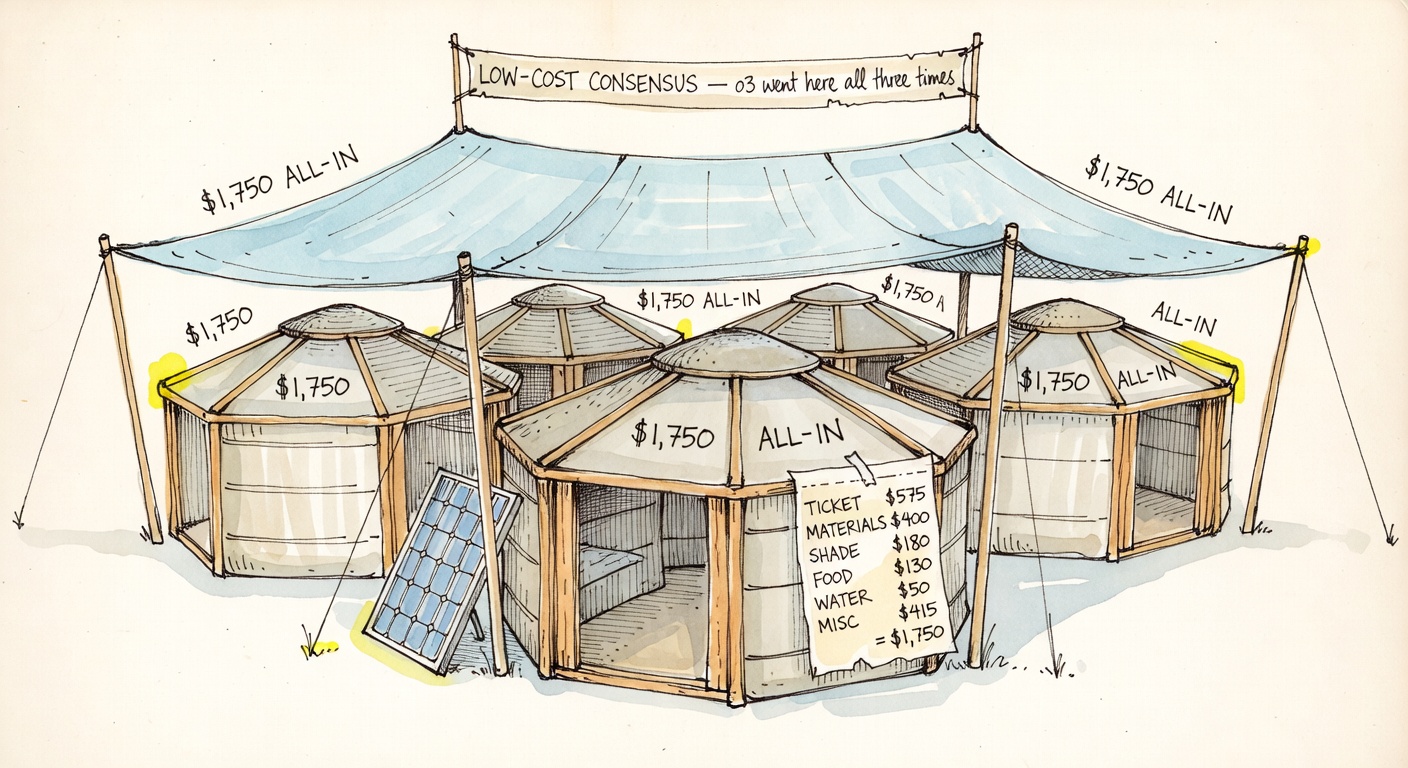 LOW-COST CONSENSUS — o3 went here all three times
$1,750 ALL-IN
$1,750 ALL-IN
$1,750
$1,750 ALL-IN
$1,750 A
ALL-IN
$1,750
$1,750 ALL-IN
$1,750 ALL-IN
TICKET $575
MATERIALS $400
SHADE $180
FOOD $130
WATER $50
MISC $415
= $1,750